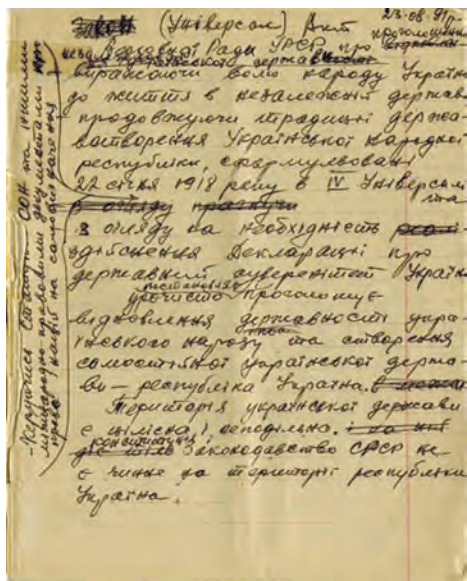 23.08.91р.
Закон (Універсал) Акт проголошення
незал Верховної Ради УРСР про
української державності
виражаючи волю народу України
до життя в незалежній державі
продовжуючи традиції держа-
вотворення Української народної
республіки, сформульовані
22 січня 1918 року в IV Універсалі
та
з огляду прагнучи
з огляду на необхідність реалі-
здійснення Декларації про
державний суверенітет України
урочисто проголошує
відновлення державності укра-
їнського народу та створення
самостійної української держа-
ви – республіка Україна.
Територія української держави
є цілісна і неподільна.
конституція і
законодавство СРСР не
є чинне на території республіки
Україна.
- Керуючися Статутом ООН та іншими
міжнародно-правовими документами про
право націй на самовизначення